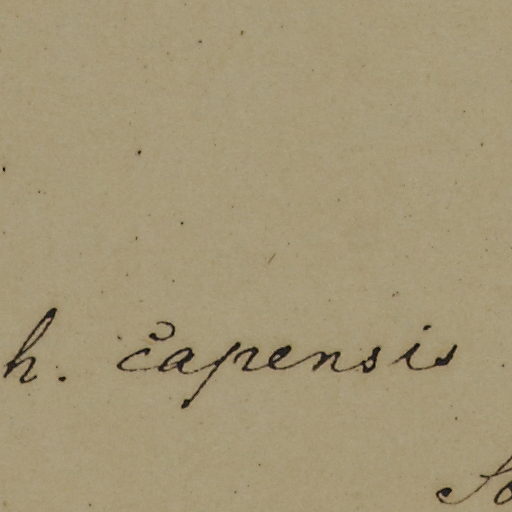 h. capensis